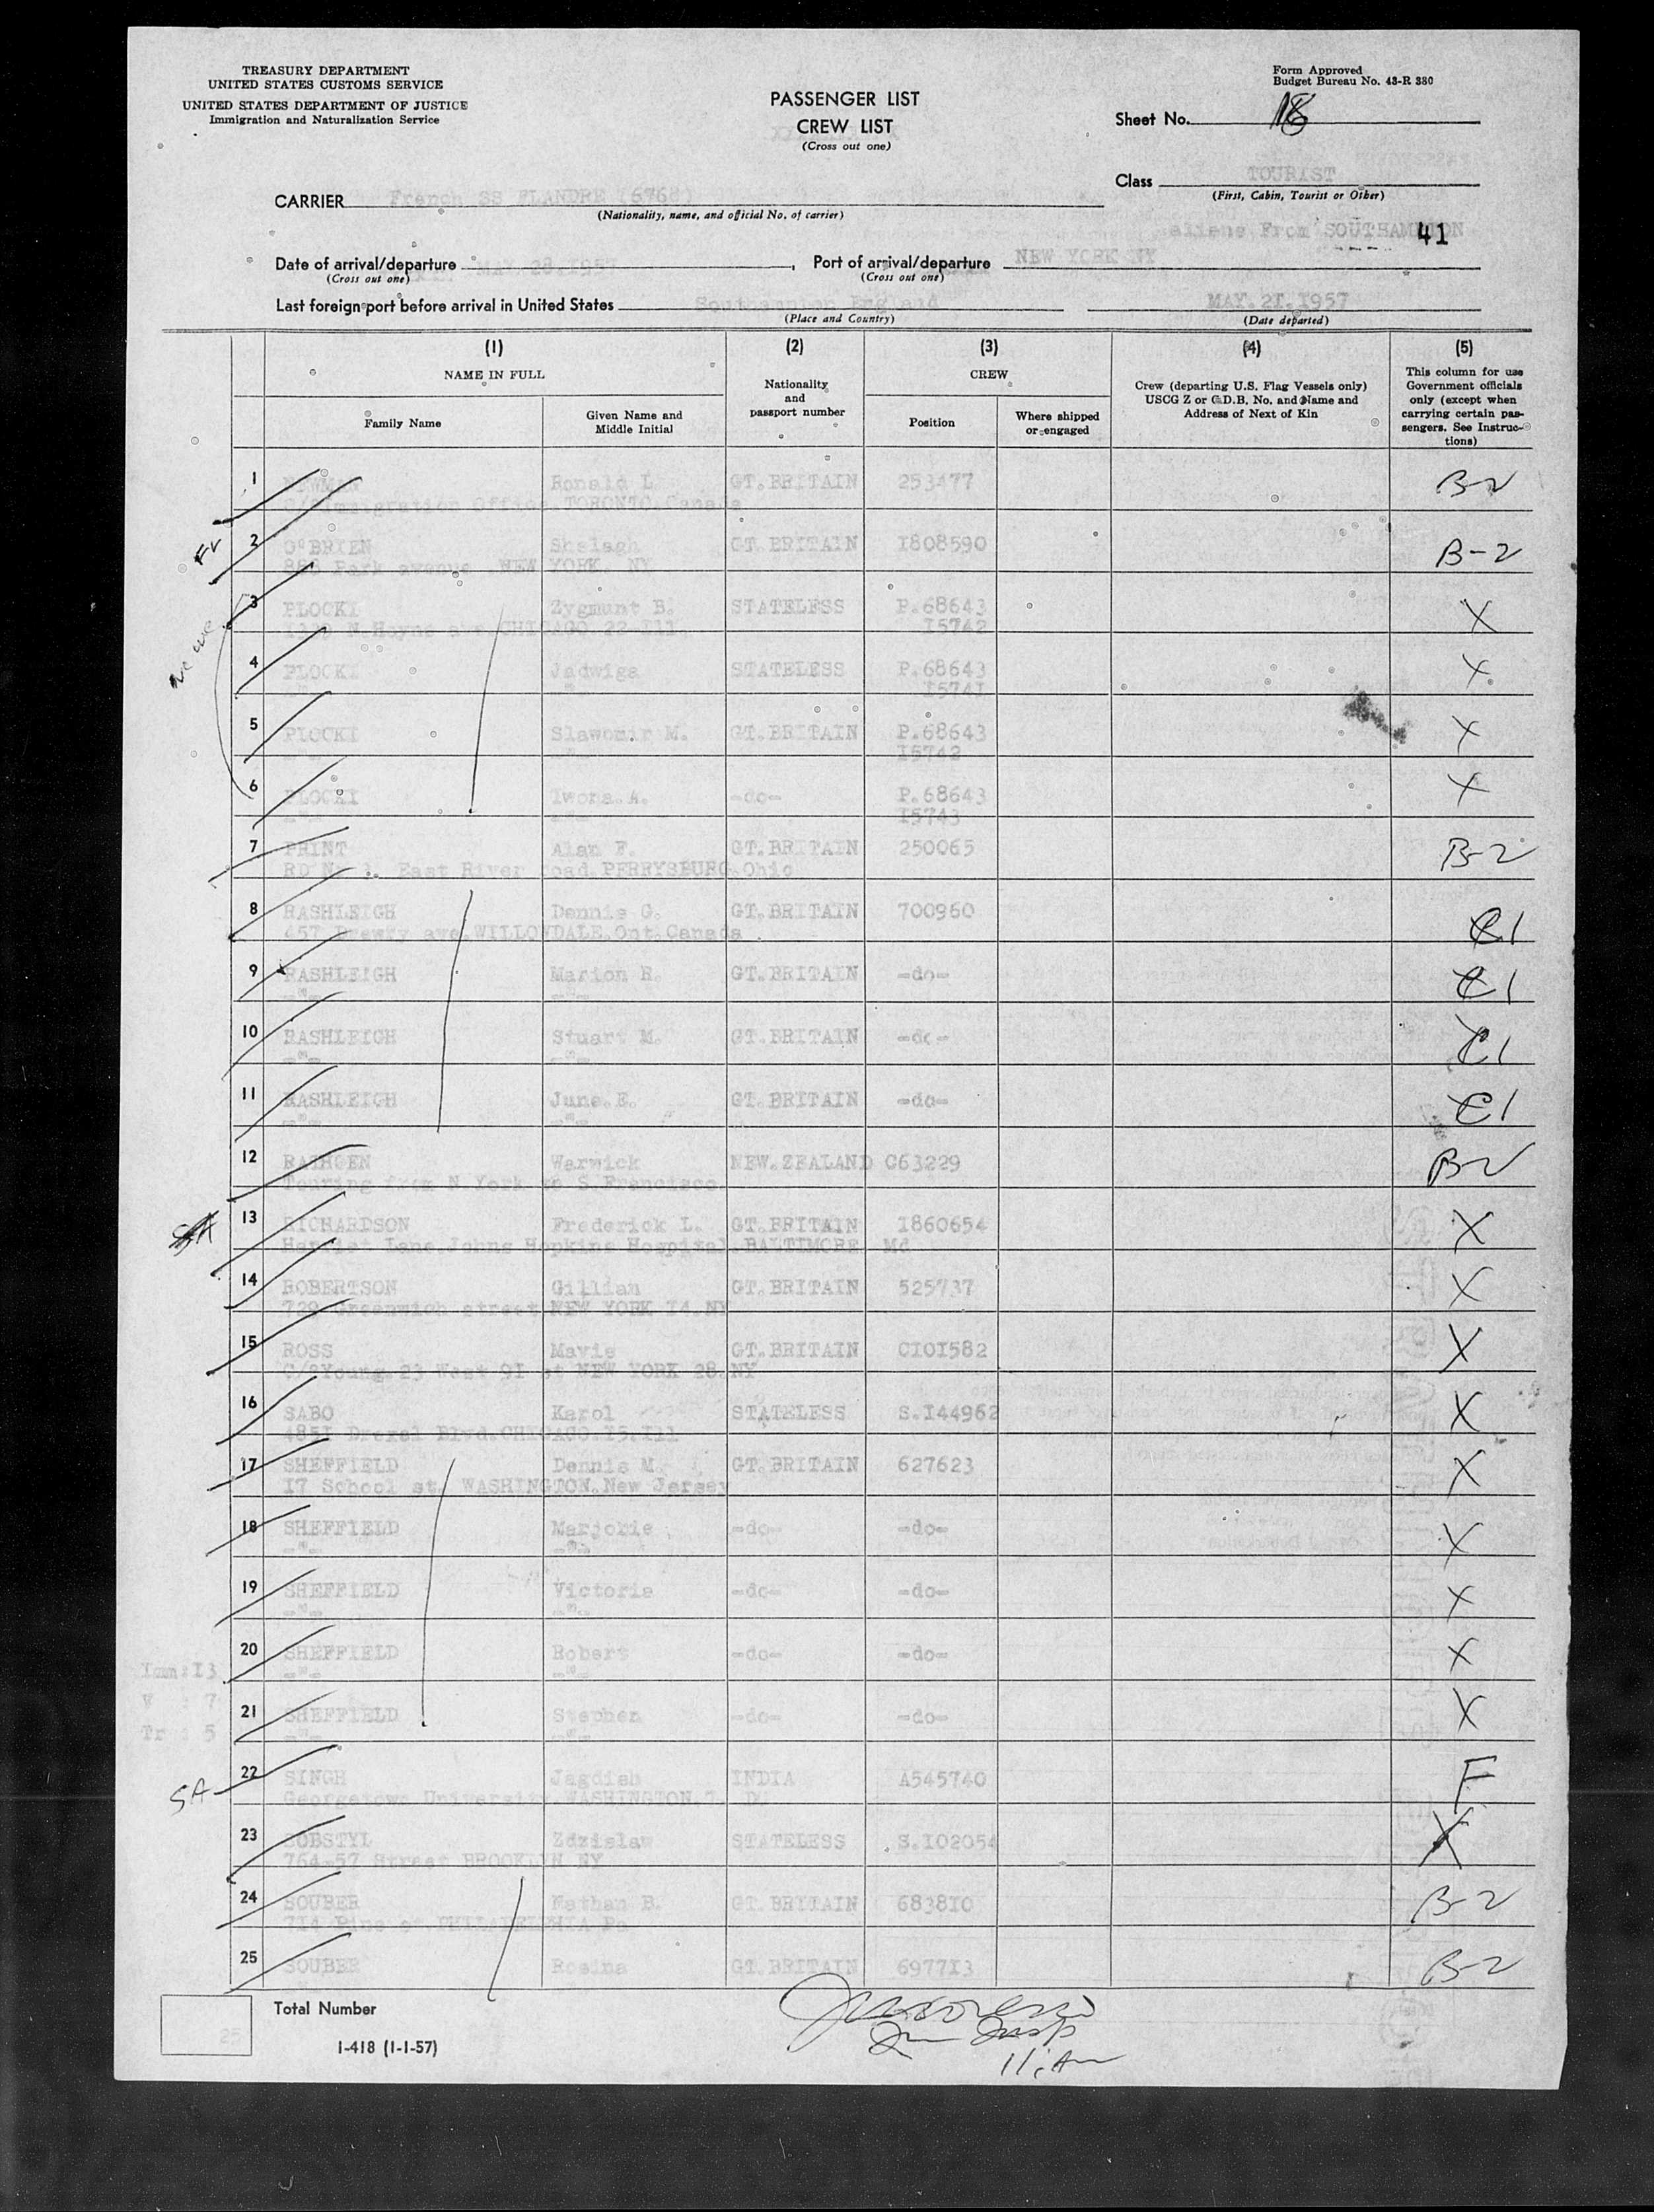 TREASURY DEPARTMENT
UNITED STATES CUSTOMS SERVICE
UNITED STATES DEPARTMENT OF JUSTICE
Immigration and Naturalization Service
PASSENGER LIST
CREW LIST
(Cross out one)
Form Approved
Budget Bureau No. 43-R 380
Sheet No. 18
Class TOURIST
(First, Cabin, Tourist or Other)
CARRIER French SS FLANDRE
(Nationality, name, and official No. of carrier)
aliens From SOUTHAMPTON
41
Date of arrival/departure MAY 28.1957, Port of arrival/departure NEW YORK NY
(Cross out one) (Cross out one)
Last foreign port before arrival in United States Southampton England MAY.21.1957
(Place and Country) (Date departed)
(1) (2) (3) (4) (5)
NAME IN FULL
Family Name
Given Name and Middle Initial
Nationality and passport number
CREW
Position
Where shipped or engaged
Crew (departing U.S. Flag Vessels only) USCG Z or C.D.B. No. and Name and Address of Next of Kin
This column for use Government officials only (except when carrying certain passengers. See Instructions)
1 NEWMAN Ronald L GT.BRITAIN 253477 B-2
Immigration Office TORONTO Canada
2 O'BRIEN Shelagh GT.BRITAIN 1808590 B-2
Park avenue NEW YORK. NY
3 PLOCKI Zygmunt B. STATELESS P.68643 X
N.Hoyne ave CHICAGO 22 Ill. 15742
4 PLOCKI Jadwiga STATELESS P.68643 X
-"- -"- 15741
5 PLOCKI Slawomir M. GT.BRITAIN P.68643 X
-"- -"- 15742
6 PLOCKI Iwona A. -do- P.68643 X
-"- -"- 15743
7 PRINT Alan F. GT.BRITAIN 250065 B-2
RD No 1. East River road PERRYSBURG Ohio
8 RASHLEIGH Dennis G. GT.BRITAIN 700960 C1
457 Drewry ave.WILLOWDALE.Ont.Canada
9 RASHLEIGH Marion R. GT.BRITAIN -do- C1
-"- -"-
10 RASHLEIGH Stuart M. GT.BRITAIN -do- C1
-"- -"-
11 RASHLEIGH June.E. GT.BRITAIN -do- C1
-"- -"-
12 Warwick NEW.ZEALAND C63229 B-2
Touring from N York to S.Francisco
SA 13 RICHARDSON Frederick L. GT.BRITAIN 1860654 X
Harriet Lane Johns Hopkins Hospital BALTIMORE Md
14 ROBERTSON Gillian GT.BRITAIN 525737 X
729 Greenwich street NEW YORK 14.NY
15 ROSS Mavis GT.BRITAIN C101582 X
C/o Young 23 West 91 st NEW YORK 28.NY
16 SABO Karol STATELESS S.144962 X
4851 Drexel Blvd.CHICAGO.15.Ill
17 SHEFFIELD Dennis M. GT.BRITAIN 627623 X
17 School st. WASHINGTON.New Jersey
18 SHEFFIELD Marjorie -do- -do- X
-"- -"-
19 SHEFFIELD Victoria -do- -do- X
-"- -"-
20 SHEFFIELD Robert -do- -do- X
-"- -"-
Imm:13
V : 7
Tr : 5
21 SHEFFIELD Stephen -do- -do- X
-"- -"-
SA 22 SINGH Jagdish INDIA A545740 F
Georgetown University.WASHINGTON
23 SOBSTYL Zdzislaw STATELESS S.102054 X
764-57 Street BROOKLYN NY
24 SOUBER Nathan B. GT.BRITAIN 683810 B-2
714 Pine st.PHILADELPHIA Pa
25 SOUBER Rosina GT.BRITAIN 697713 B-2
25
Total Number
I-418 (1-1-57)
Imm Insp